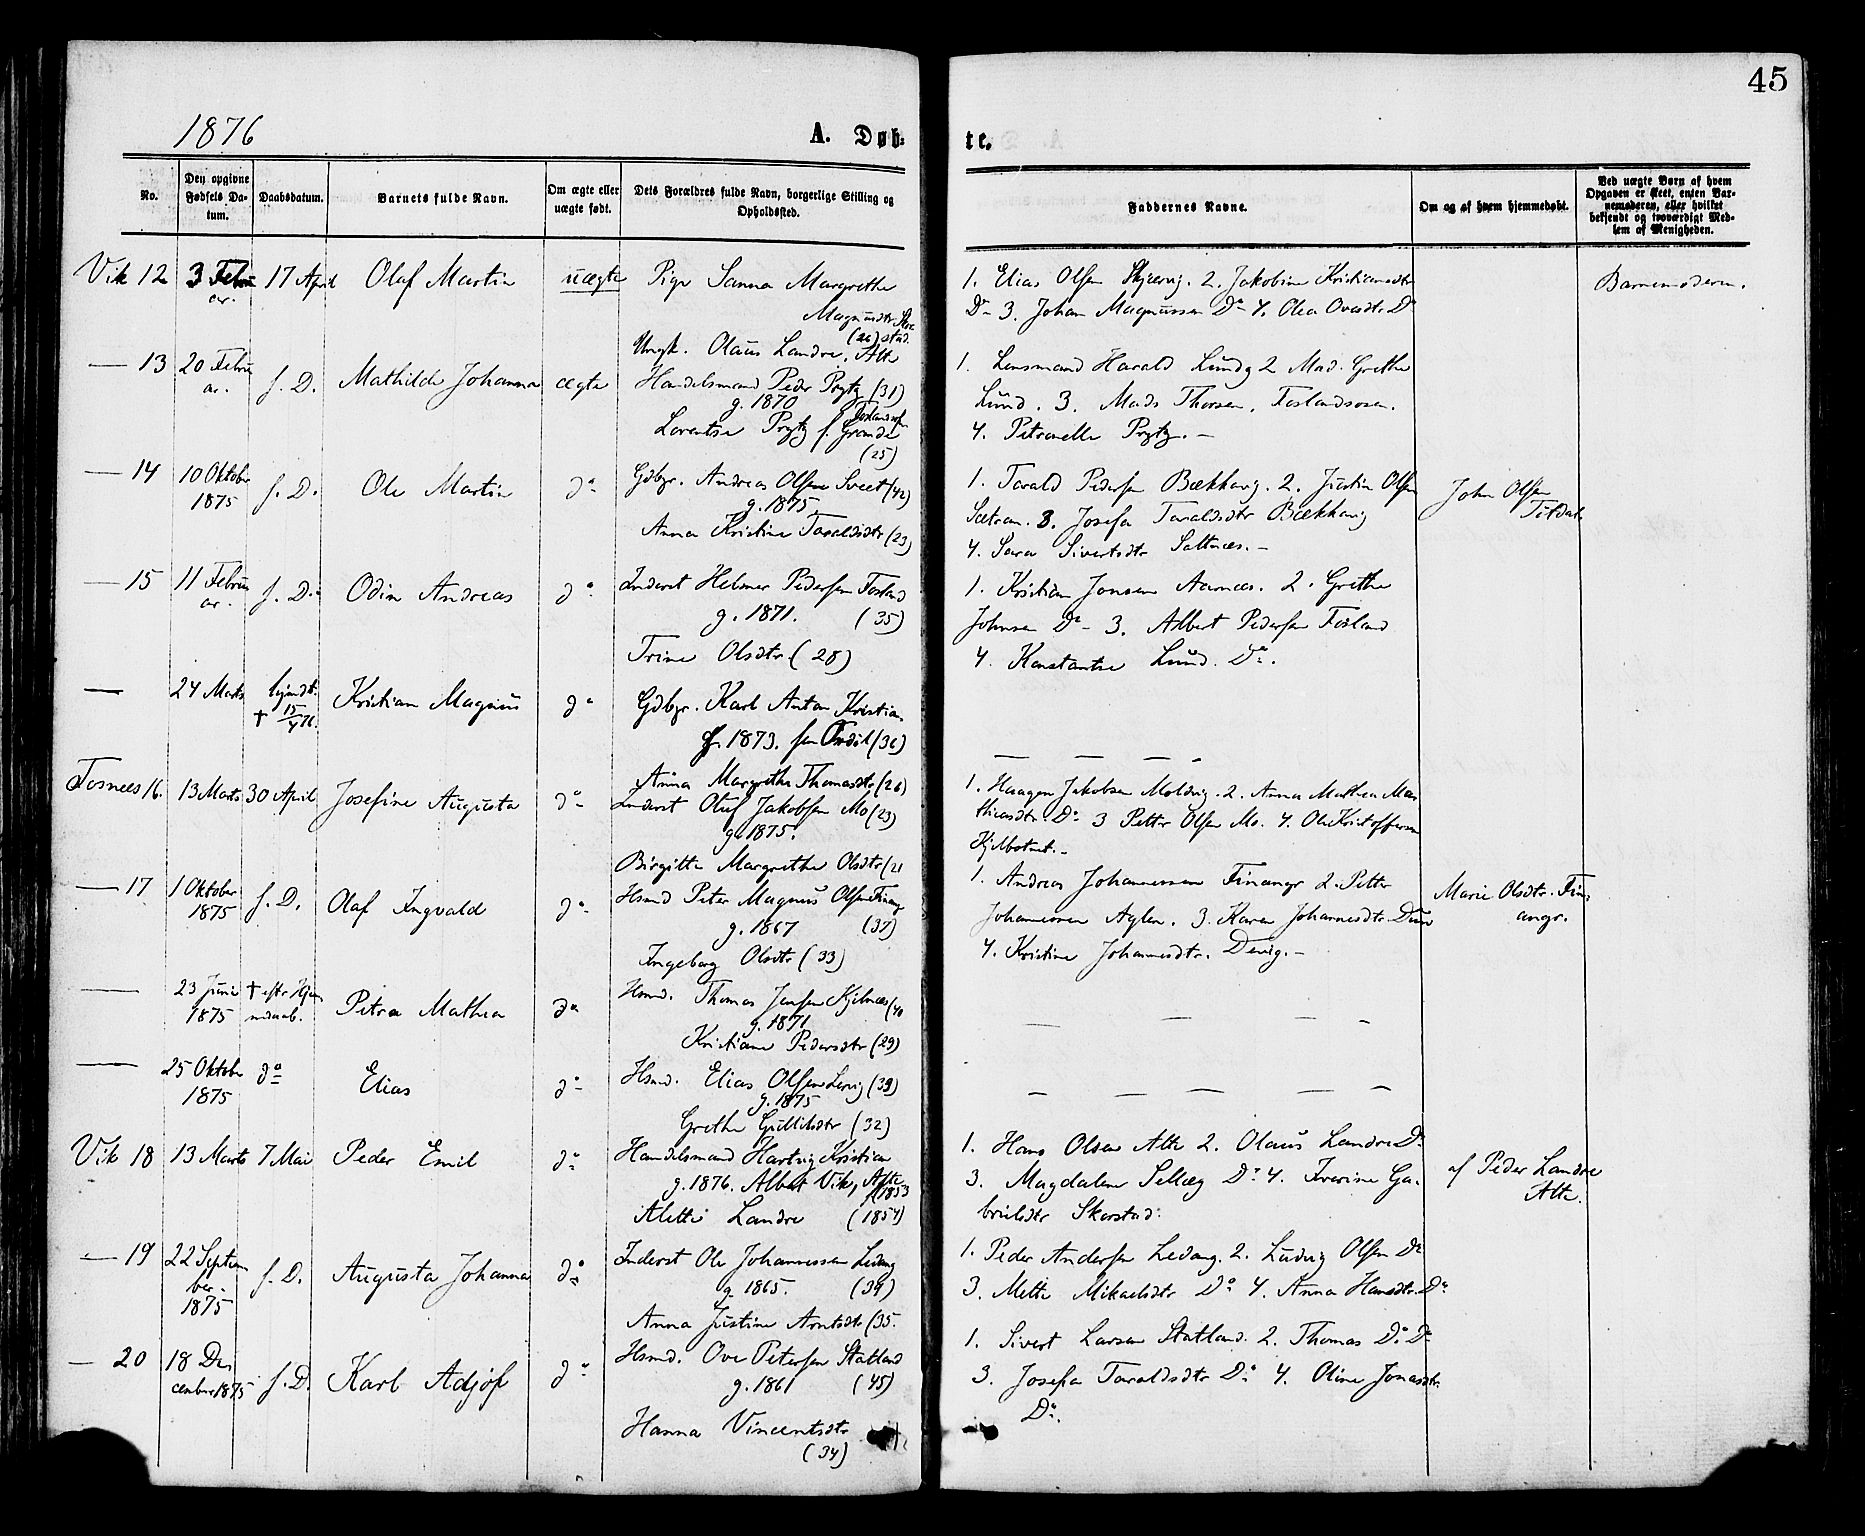 45
1876
A. Døb=
te.
No.
Den opgivne Fødsels Da-tum.
Daabsdatum.
Barnets fulde Navn.
Om ægte eller uægte født.
Dets Forældres fulde Navn, borgerlige Stilling og Opholdssted.
Faddernes Navne.
Om og af hvem hjemmedøbt.
Ved uægte Børn af hvem Opgaven er skeet, enten Bar-nemoderen, eller hvilket bekjendt og troværdigt Med-lem af Menigheden.
Vik 12 3 Febru ar. 17 April Olaf Martin uægte Pige Sanna Margrethe
Magnusdtr.
(26)
Ungk. Olaus Landre, Alte
1. Elias Olsen Skjærvig. 2. Jakobine Kristiansdtr
Do 3. Johan Magnussen Do 4. Olea Ovesdtr. Do
Barnemoderen.
— 13 20 Febru ar. s. D. Mathilde Johanna ægte Handelsmand Peder Prytz (31)
g. 1870
Lorentse Prytz f. Grande
(25)
1. Lensmand Harald Lund 2 Mad. Grethe
Lund. 3. Mads Thorsen, Foslandsosen.
4. Petronelle Prytz. —
— 14 10 Oktober 1875 s. D. Ole Martin do Gdbgr. Andreas Olsen (42)
g. 1875.
Anna Kristine Taraldsdtr (23)
1. Tarald Pedersen Bækkavig. 2. Justin Olsen
Sætran. 3. Josefa Taraldsdtr Bækkavig
4. Sara Sivertsdtr Saltnæs. —
John Olsen
— 15 11 Febru ar. s. D. Odin Andreas do Inderst Helmer Pedersen Fosland
g. 1871. (35)
Trine Olsdtr. (28)
1. Kristian Jonsen Aarnæs. 2. Grethe
Johnsen Do — 3. Albert Pedersen Fosland
4. Konstantse Lund. Do.
— 24 Marts hjmdt. † 15/4 76. Kristian Magnus do Gdbgr. Karl Anton Kristian
g. 1873. sen (36)
Anna Margrethe Thomasdtr (26)
— — — —
Fosnees 16. 13 Marts 30 April Josefine Augusta do Inderst Oluf Jakobsen Mo (23)
g. 1875.
Birgitte Margrethe Olsdtr (21
1. Haagen Jakobsen Moldvig. 2. Anna Mathea Mat
thiasdtr. Do 3 Petter Olsen Mo. 4. Ole Kristoffersen
Kjelbotnet. —
— 17 1 Oktober 1875 s. D. Olaf Ingvald do Hsmd Peter Magnus Olsen Finang
g. 1867 (37)
Ingeborg Olsdtr (33)
1. Andreas Johannessen Finangr 2. Petter
Johannessen Aglen. 3. Karen Johannesdtr. Duun
4. Kristine Johannesdtr. Devig. —
Marie Olsdtr. Fin-
angr.
— 23 Juni 1875 † eftr Hjem medaab. Petra Mathea do Hsmd. Thomas Jensen Kjelnæs (40
g. 1871
Kristiane Pedersdtr (29)
— — — —
— 25 Oktober 1875 do Elias do Hsmd. Elias Olsen (39)
g. 1875
Grethe Gullikdtr (32)
— — — —
Vik 18 13 Marts 7 Mai Peder Emil do Handelsmand Hartvig Kristian
g. 1876. Albert Vik, Alte
1853
Alette Landre (1854)
1. Hans Olsen Alte 2. Olaus Landre Do
3. Magdalena Sellæg Do 4. Iverine Ga-
brielsdtr Skorstad.
af Peder Landre
Alte.
— 19 22 Septem ber. 1875 s. D. Augusta Johanna do Inderst Ole Johannessen Ledang
g. 1865. (39)
Anna Justine Arntsdtr (35.
1. Peder Andersen Ledang. 2. Ludvig Olsen Do
3. Mette Mikaelsdtr Do 4. Anna Hansdtr. Do
— 20 18 De- cember 1875 s. D. Karl Adjøf do Hsmd. Ove Petersen Statland
g. 1861 (45)
Hanna Vincentsdtr
(34)
1. Sivert Larsen Statland. 2. Thomas Do Do
3. Josefa Taraldsdtr Do 4. Oline Jonasdtr.
Do.